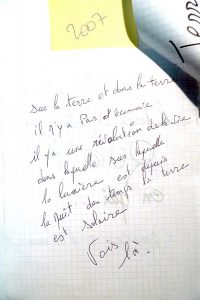 2007
Terre
sur la terre et dans la terre
il n'y a pas d'économie
il y a une révolution de la vie
dans laquelle sur laquelle
la lumière est depuis
la nuit des temps la terre
est solaire
Vois
là.